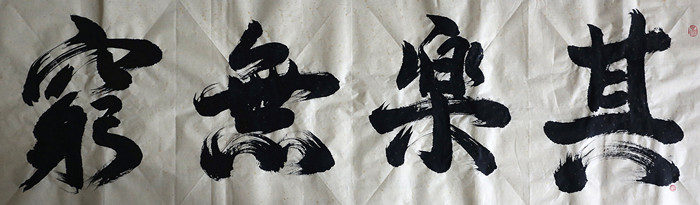 其樂無窮